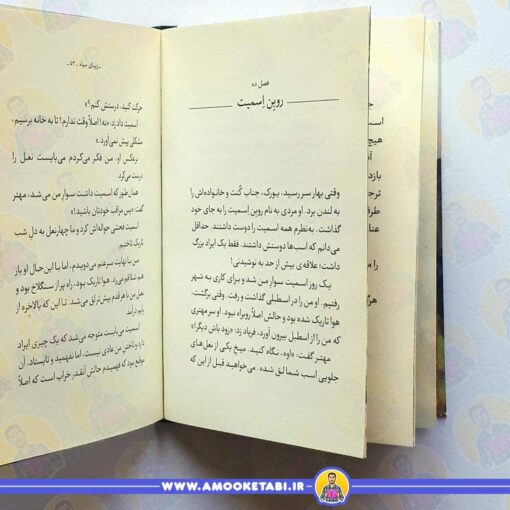 فصل ده
روبِن اِسمیت
وقتی بهار سر رسید، یورک، جناب کُنت و خانواده‌اش را
به لندن برد. او مردی به نام روبِن اِسمیت را به جای خود
گذاشت. به‌نظرم همه اسمیت را دوست داشتند. حداقل
می‌دانم که اسب‌ها دوستش داشتند. فقط یک ایراد بزرگ
داشت؛ علاقه‌ی بیش از حد به نوشیدنی!
یک روز اسمیت سوار من شد و برای کاری به شهر
رفتیم. او من را در اصطبلی گذاشت و رفت. وقتی برگشت،
هوا تاریک شده بود و حالش اصلاً روبراه نبود. او سر مهتری
که من را از اسطبل بیرون آورد، فریاد زد: «زود باش دیگر!»
مهتر گفت: «اوه، نگاه کنید. میخ یکی از نعل‌های
جلویی اسب شما لق شده. می‌خواهید قبل از این که
ـ زیبای سیاه ـ ۵۳ ـ
حرکت کنید، درستش کنم؟»
اسمیت داد زد: «نه! اصلاً وقت ندارم! تا به خانه برسیم،
مشکلی پیش نمی‌آورد.»
برعکس او، من فکر می‌کردم می‌بایست نعل را
درست می‌کرد.
همان‌طور که اسمیت داشت سوار من می‌شد، مهتر
گفت: «پس مراقب خودتان باشید!»
اسمیت فحشی حواله‌اش کرد و ما چهارنعل به دل شب
تاریک تاختیم.
من نهایت سرعتم می‌دویدم، اما با این حال او باز
هم شلاقم می‌زد. هوا تاریک بود، راه پر از سنگلاخ بود و
نعل من با هر قدم بیش‌تر لق می‌شد. تا این که بالاخره از
پایم درآمد.
اسمیت می‌بایست متوجه می‌شد که یک چیزی ایراد
دارد و تاختن من عادی نیست، اما نفهمید و نایستاد. آن
موقع بود که فهمیدم حالش آنقدر خراب است که اصلاً
WWW.AMOOKETABI.IR